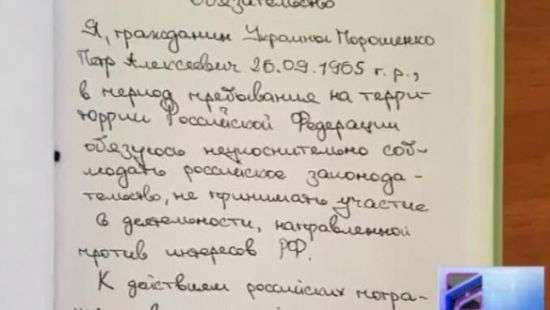 Обязательство
Я, гражданин Украины Порошенко
Петр Алексеевич 26.09.1965 г.р.,
в период пребывания на терри-
тюррии Российской Федерации
обязуюсь неукоснительно соб-
людать российское законода-
тельство, не принимать участие
в деятельности, направленной
против интересов РФ.
К действиям российских погра-